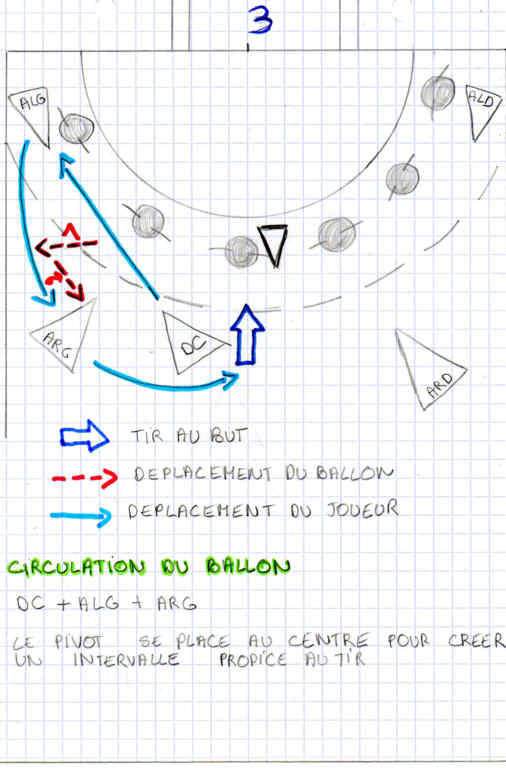 3
ALG
ALD
1
2
ARG
DC
ARD
TIR AU BUT
DEPLACEMENT DU BALLON
DEPLACEMENT DU JOUEUR
CIRCULATION DU BALLON
DC + ALG + ARG
LE PIVOT SE PLACE AU CENTRE POUR CREER
UN INTERVALLE PROPICE AU TIR